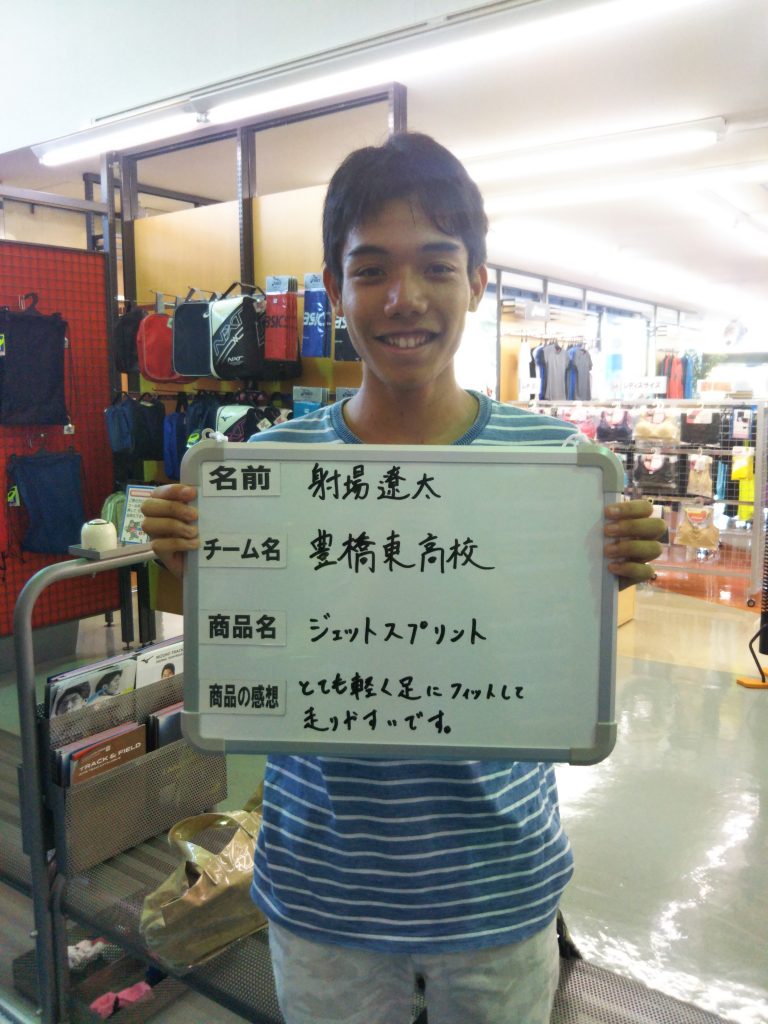 名前 射場遼太
チーム名 豊橋東高校
商品名 ジェットスプリント
商品の感想 とても軽く足にフィットして
走りやすいです。
NXT
NXT
TRACK & FIELD
レディスサイズ